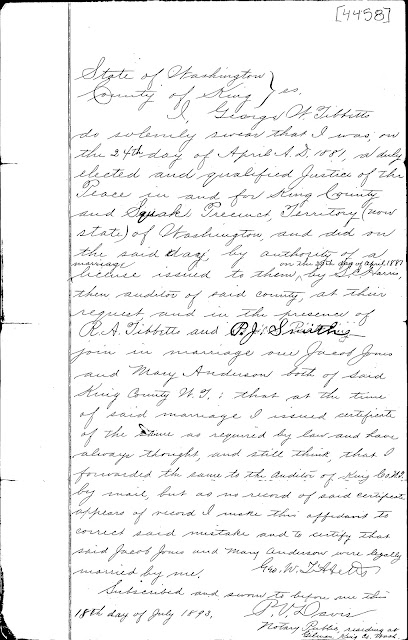 [4458]
State of Washington }
County of King } ss.
I, George W. Tibbetts
do solemnly swear that I was, on
the 24th day of April A.D. 1881, a duly
elected and qualified Justice of the
Peace in and for King County
and Squak Precinct, Territory (now
state) of Washington, and did on
the said day, by authority of a
marriage on the day of April, 1881
licence issued to them, by Harris,
then auditor of said county, at their
request and in the presence of
R.A. Tibbetts and P.J. Smith
join in marriage one Jacob Jones
and Mary Anderson both of said
King County W.T.; that at the time
of said marriage I issued certificate
of the same as required by law and have
always thought, and still think, that I
forwarded the same to the Auditor of King Co. W.T.
by mail, but as no record of said certificate
appears of record I make this affidavit to
correct said mistake and to certify that
said Jacob Jones and Mary Anderson were legally
married by me. Geo. W. Tibbetts
Subscribed and sworn to before me this
18th day of July 1893. P.V. Davis
Notary Public, residing at
Gilman King Co. Wash.